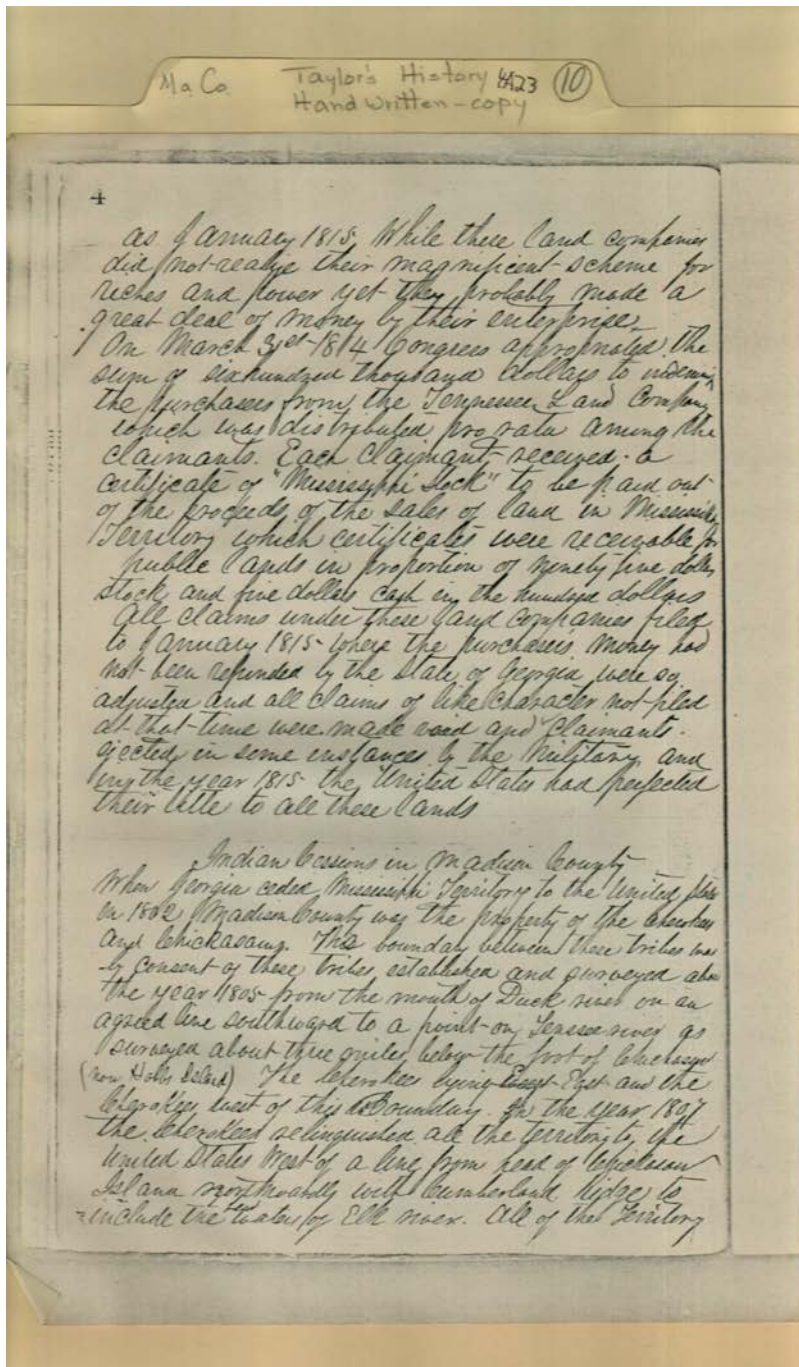 Ma Co. Taylor's History 4A23 10
Hand written - copy
4
as January 1815. While these land companies
did not realize their magnificent scheme for
riches and power yet they probably made a
great deal of money by their enterprise
On March 31st 1814 Congress appropriated the
sum of six hundred thousand dollars to
the purchasers from the Tennessee Land Company
which was distributed pro rata among the
claimants. Each claimant received a
certificate of "Mississippi Stock" to be paid out
of the proceeds of the sales of land in Mississippi
Territory which certificates were receivable for
public lands in proportion of ninety five dollars
stock and five dollars cash in the hundred dollars
All claims under these land companies filed
to January 1815 where the purchasers money had
not been refunded by the State of Georgia were so
adjusted and all claims of like character not filed
at that time were made void and claimants
ejected in some instances by the Military, and
in the year 1815 the United States had perfected
their title to all these lands
Indian Cessions in Madison County
When Georgia ceded Mississippi Territory to the United States
in 1802 Madison County was the property of the Cherokees
and Chickasaws. The bounday between these tribes was
by consent of these tribes, established and surveyed about
the year 1805 from the mouth of Duck river on an
agreed line southward to a point on river as
surveyed about three miles below the foot of
(now Hobbs Island) The Cherokees lying East and the
Cherokees west of this Bounday. In the year 1807
the Cherokees relinquished all the territory to the
United States West of a line from head of Chickasaw
Island northwardly with Cumberland Ridge to
include the waters of Elk river. All of the Territory